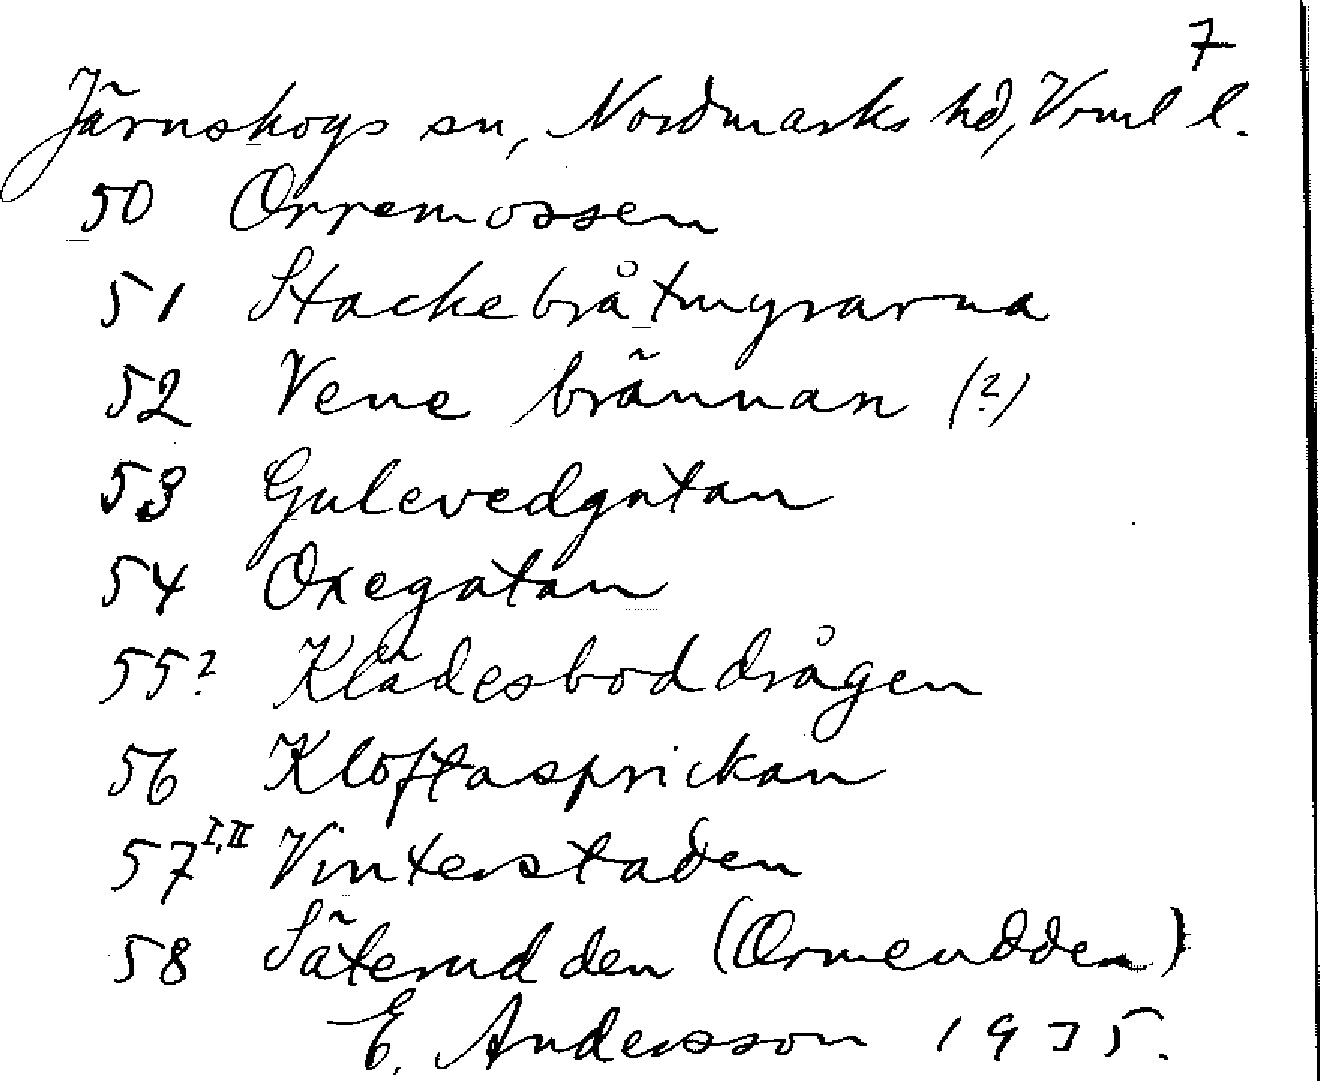 7
Järnskogs sn, Nordmarks hd, Vrml l.
50 Orremossen
51 Stackebråtmyrarna
52 Vene brännan (?)
53 Gulevedgatan
54 Oxegatan
55? Klädesboddrågen
56 Kloftasprickan
57 I, II Vinterstaden
58 Säterudden (Ormeudden)
E. Andersson 1935.